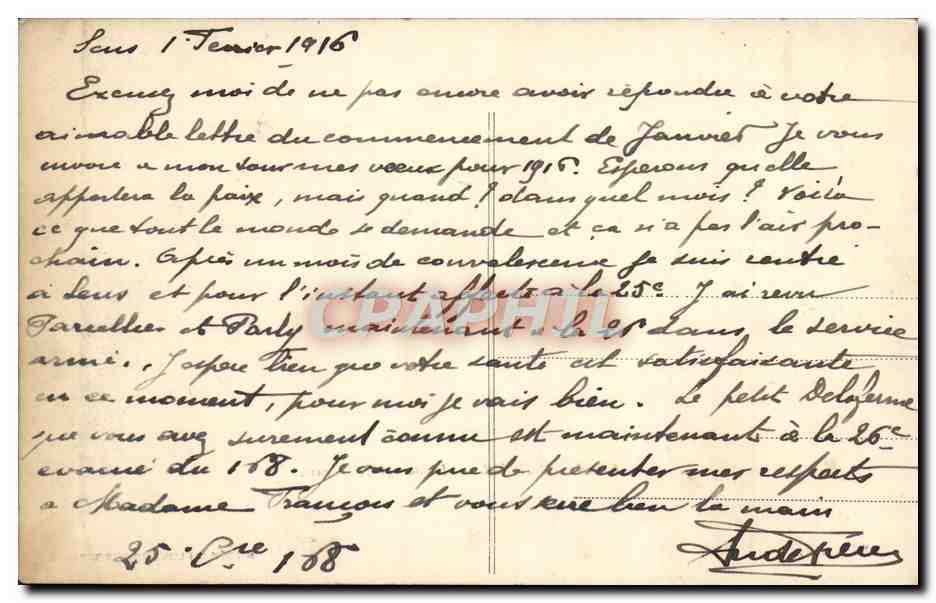 Sens 1 Fevrier 1916
Excusez moi de ne pas encore avoir répondu à votre
aimable lettre du commencement de Janvier Je vous
envoie a mon tour mes voeux pour 1916. Esperons qu'elle
apportera la paix, mais quand? dans quel mois? Voilà
ce que tout le monde se demande et ça n'a pas l'air pro-
chain. Après un mois de convalescence je suis rentré
à Sens et pour l'instant affecté à la 25e J'ai revu
et maintenant à la 26 dans le service
armé. J'espere bien que votre santé est satisfaisante
en ce moment, pour moi je vais bien. Le petit
que vous avez surement connu est maintenant à la 26e
evacué du 168. Je vous prie de présenter mes respects
a Madame François et vous serre bien la main
25 Cie 168
CRAPHIL